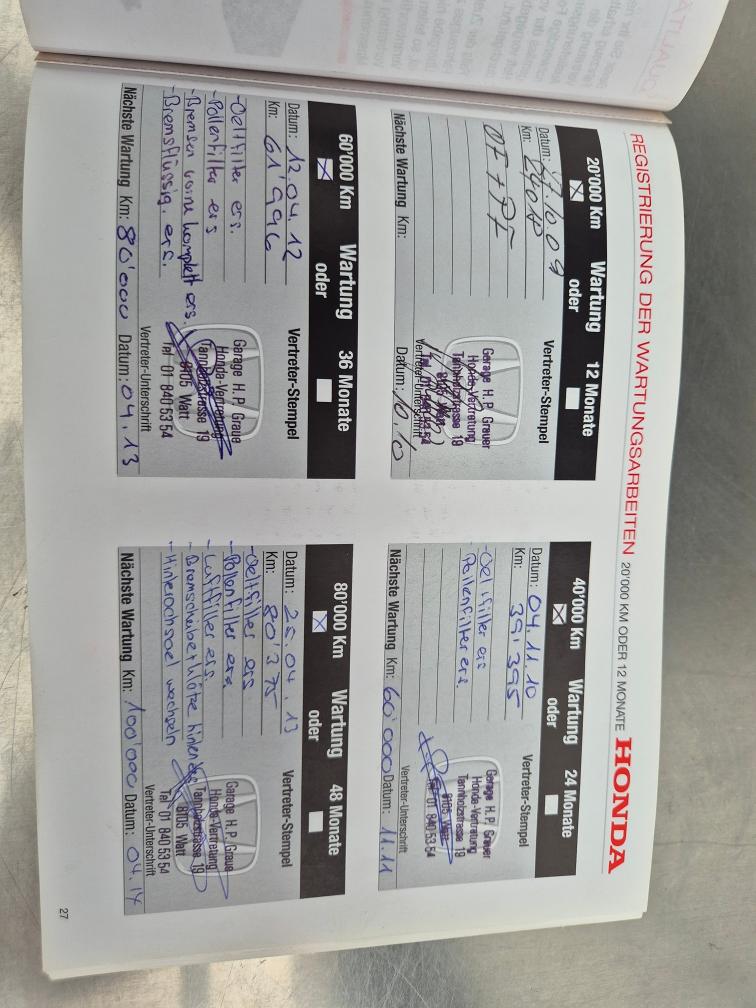 REGISTRIERUNG DER WARTUNGSARBEITEN 20'000 KM ODER 12 MONATE HONDA
20'000 Km Wartung 12 Monate
oder
Datum: 10.09
Vertreter-Stempel
Km:
OF + PF
Garage H.P. Grauer
Honda-Vertretung
Tannholzstrasse 19
8105 Watt
Tel. 01 840 53 54
Vertreter-Unterschrift
Nächste Wartung Km: Datum: 10.10
40'000 Km Wartung 24 Monate
oder
Datum: 04.11.10
Vertreter-Stempel
Km: 39'395
- Oelfilter ers
Pollenfilter ers.
Garage H.P. Grauer
Honda-Vertretung
Tannholzstrasse 19
8105 Watt
Tel 01 840 53 54
Vertreter-Unterschrift
Nächste Wartung Km: 60'000 Datum: 11.11
60'000 Km Wartung 36 Monate
oder
Datum: 12.04.12
Vertreter-Stempel
Km: 61'996
- Oelfilter ers.
- Pollenfilter ers
- Bremsen vorne komplett ers.
- Bremsflüssig. ers.
Garage H.P. Graue
Honda-Vertretung
Tannholzstrasse 19
8105 Watt
Tel 01 840 53 54
Vertreter-Unterschrift
Nächste Wartung Km: 80'000 Datum: 04.13
80'000 Km Wartung 48 Monate
oder
Datum: 25.04.13
Vertreter-Stempel
Km: 80'375
- Oelfilter ers
- Pollenfilter ers
- Luftfilter ers.
- Bremsscheiben + klötze hinten
- Hinterachsoel wechseln
Garage H.P. Graue
Honda-Vertretung
Tannholzstrasse 19
8105 Watt
Tel 01 840 53 54
Vertreter-Unterschrift
Nächste Wartung Km: 100'000 Datum: 04.14
27